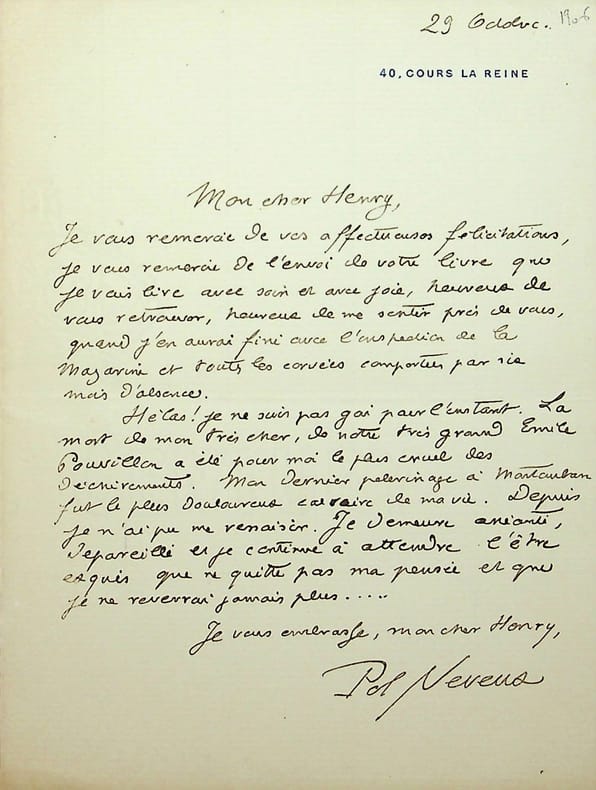 29 Octobre. 1906
40, COURS LA REINE
Mon cher Henry,
Je vous remercie de vos affectueuses félicitations,
je vous remercie de l'envoi de votre livre que
je vais lire avec soin et avec joie, heureux de
vous retrouver, heureux de me sentir près de vous,
quand j'en aurai fini avec l'inspection de la
Mazarine et toutes les corvées comportées par six
mois d'absence.
Hélas! je ne suis pas gai pour l'instant. La
mort de mon très cher, de notre très grand Emile
Pouvillon a été pour moi le plus cruel des
déchirements. Mon dernier pèlerinage à Montauban
fut le plus douloureux calvaire de ma vie. Depuis
je n'ai pu me ressaisir. Je demeure anéanti,
dépareillé et je continue à attendre l'être
exquis qui ne quitte pas ma pensée et que
je ne reverrai jamais plus.....
Je vous embrasse, mon cher Henry,
Pol Neveux